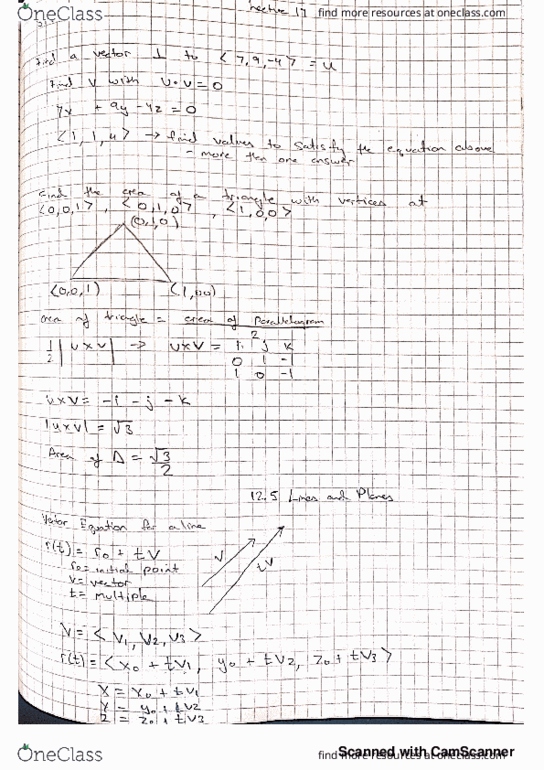 OneClass
Lecture 17
find more resources at oneclass.com
find a vector ⊥ to < 7, 9, -4 > = u
find v with u·v = 0
7x + 9y - 4z = 0
<1, 1, 4> → find values to satisfy the equation above
- more then one answer
Find the area of a triangle with vertices at
<0,0,1>, <0,1,0>, <1,0,0>
(0,1,0)
(0,0,1)
(1,0,0)
area of triangle = area of parallelogram
2
1/2 |u×v| → u×v = i j k
0 1 -1
1 0 -1
u×v = -i - j - k
|u×v| = √3
Area of Δ = √3/2
12.5 Lines and Planes
Vector Equation for a line
r(t) = r0 + tV
r0 = initial point
v = vector
t = multiple
v
tv
V = < V1, V2, V3 >
r(t) = < x0 + tV1, y0 + tV2, z0 + tV3 >
X = x0 + tV1
Y = y0 + tV2
Z = z0 + tV3
OneClass
find more resources at oneclass.com
Scanned with CamScanner